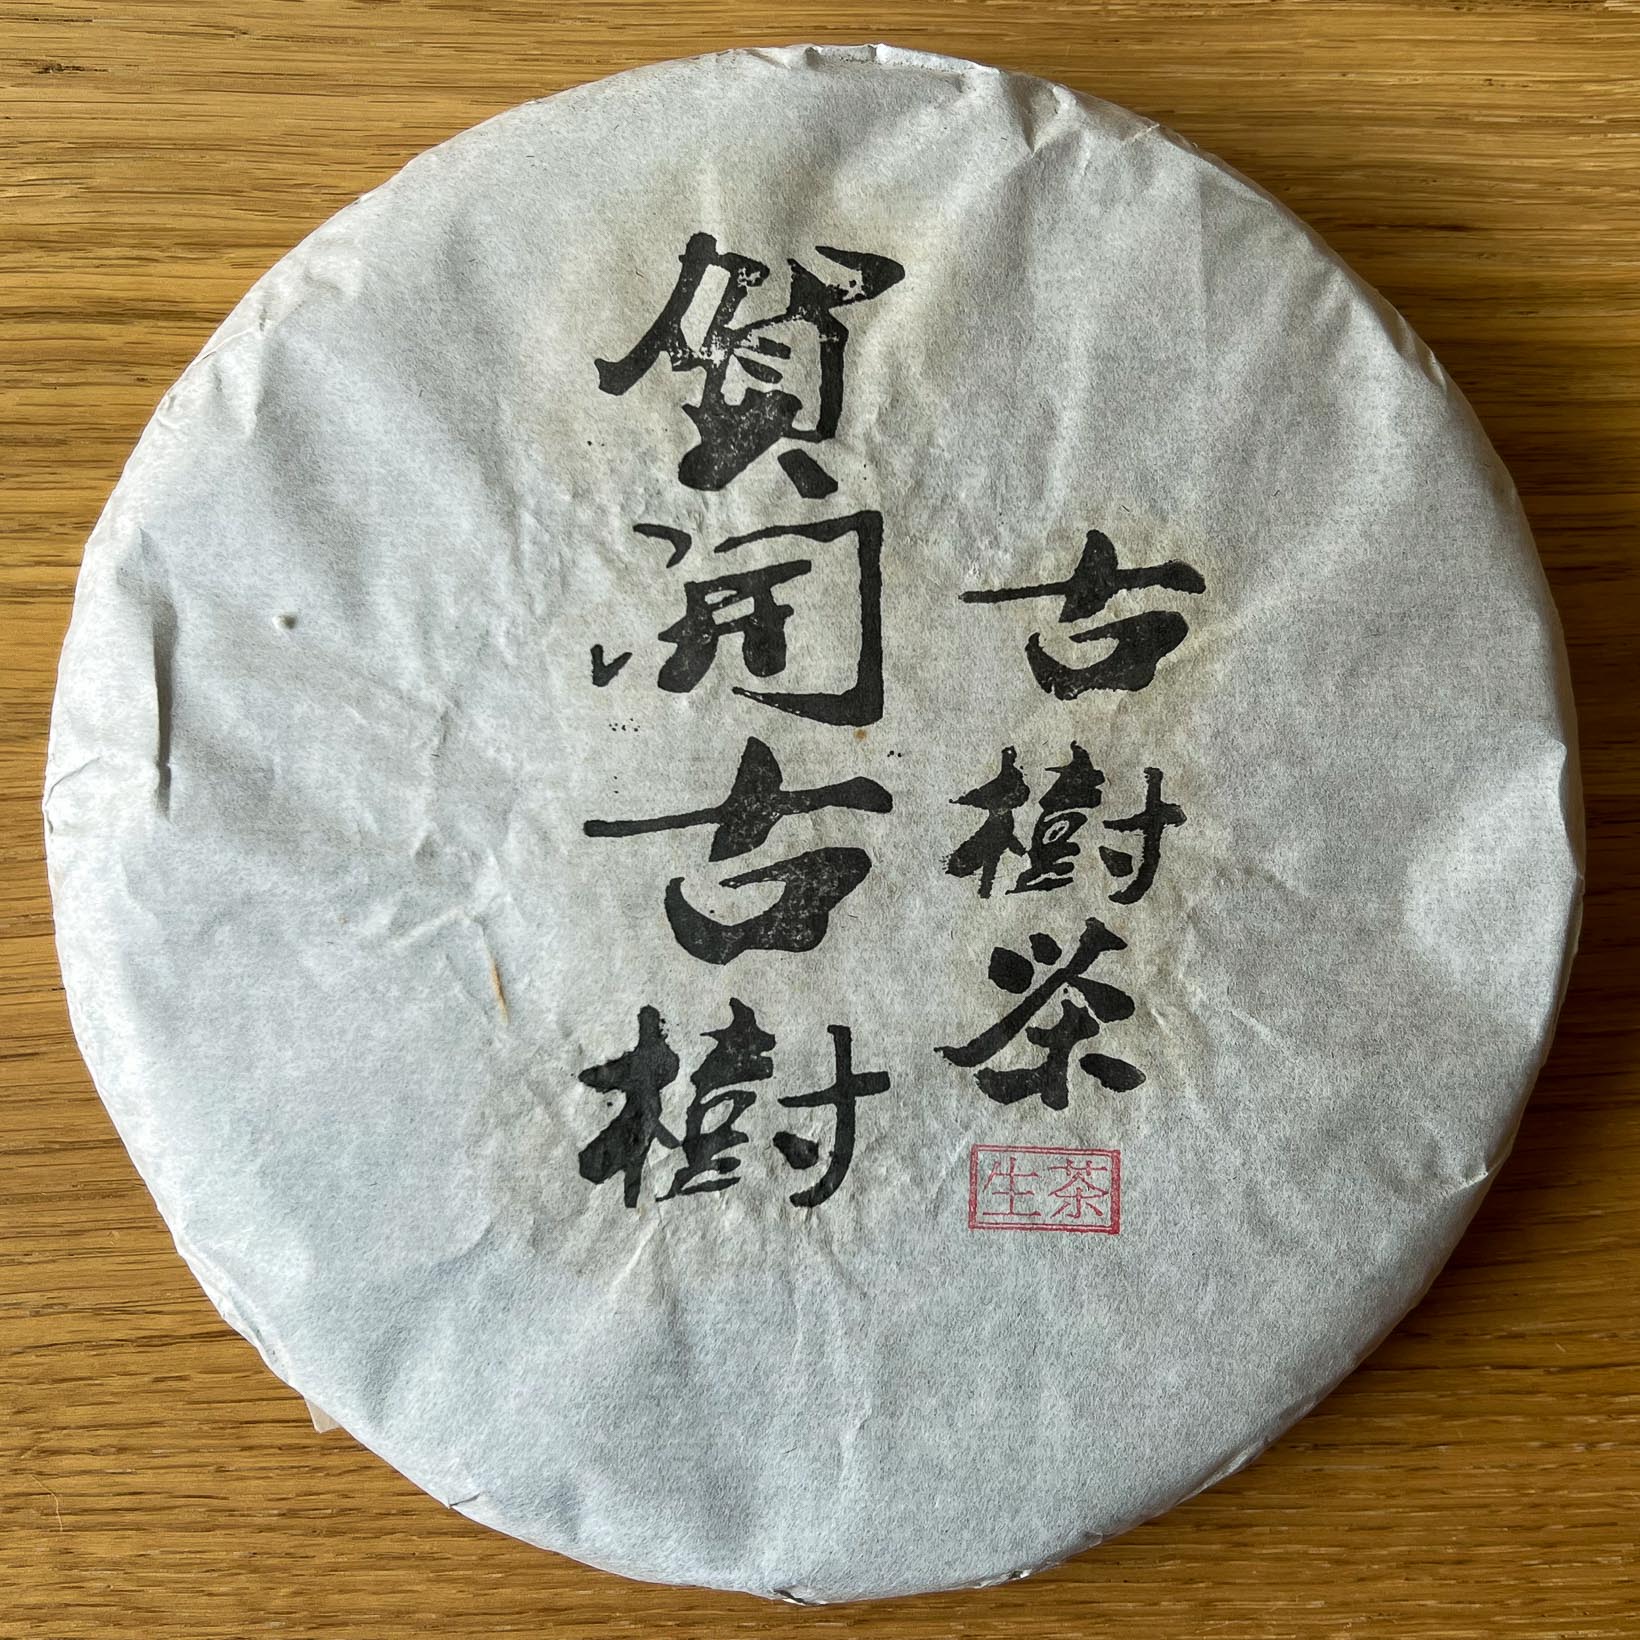 賀開古樹
古樹茶
生茶